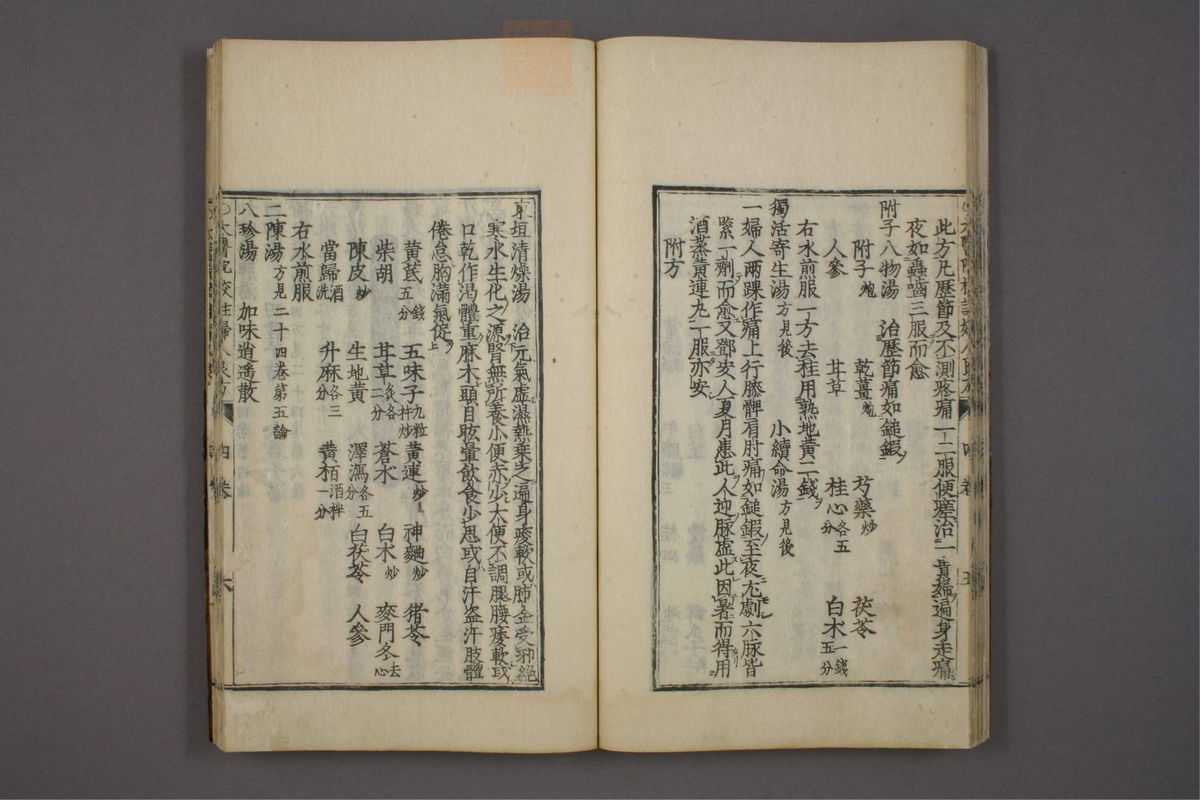 此方凢歷節及不測疼痛一二服便瘥治一貴婦遍身走痛
夜如轟嚙三服而愈
附子八物湯　治歷節痛如鎚鍜
附子炮　乾薑炮　芍藥炒　茯苓
人參　甘草　桂心各五分　白朮一錢五分
右水煎服一方去桂用熟地黄二錢
獨活寄生湯方見後　小續命湯方見後
一婦人兩踝作痛上行膝髀肩肘痛如鎚鍜至夜尤劇六脉皆
緊一劑而愈又鄧安人夏月患此人迎脉虛此因暑而得用
酒蒸黄連丸一服亦安
附方
東垣清燥湯　治元氣虛濕熱乗之遍身痠軟或肺金受邪絕
寒水生化之源腎無所養小便赤少大便不調腿腰痿軟或
口乾作渴體重麻木頭目眩暈飲食少思或自汗盗汗肢體
倦怠胸滿氣促
黄芪五分　五味子九粒杵炒　黄連炒　神麯炒　猪苓
柴胡　甘草炙各二分　蒼朮　白朮炒　麥門冬去心
陳皮炒　生地黄　澤瀉各五分　白茯苓　人參
當歸酒洗　升麻各三分　黄栢酒拌一分
右水煎服
二陳湯方見二十四卷第五論
八珍湯　加味逍遥散
四卷
六